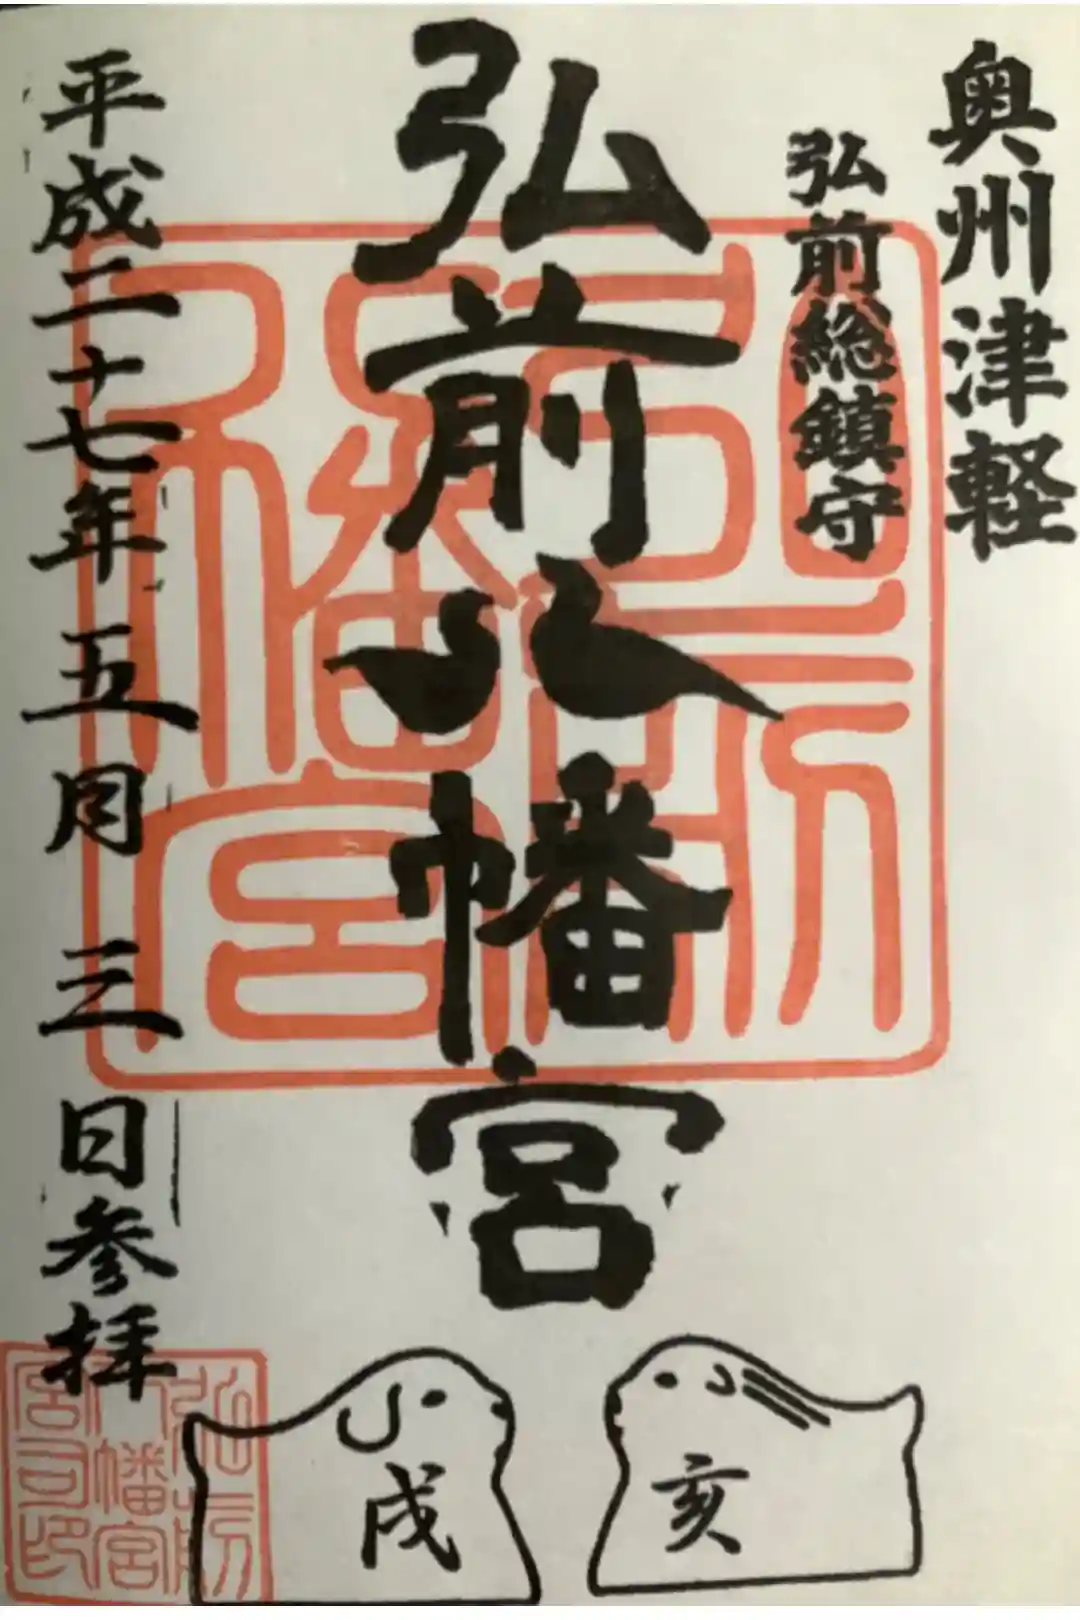 奥州津軽
弘前総鎮守
弘前八幡宮
平成二十七年五月三日参拝
弘前八幡宮
弘前
八幡宮
宮司印
亥
戌